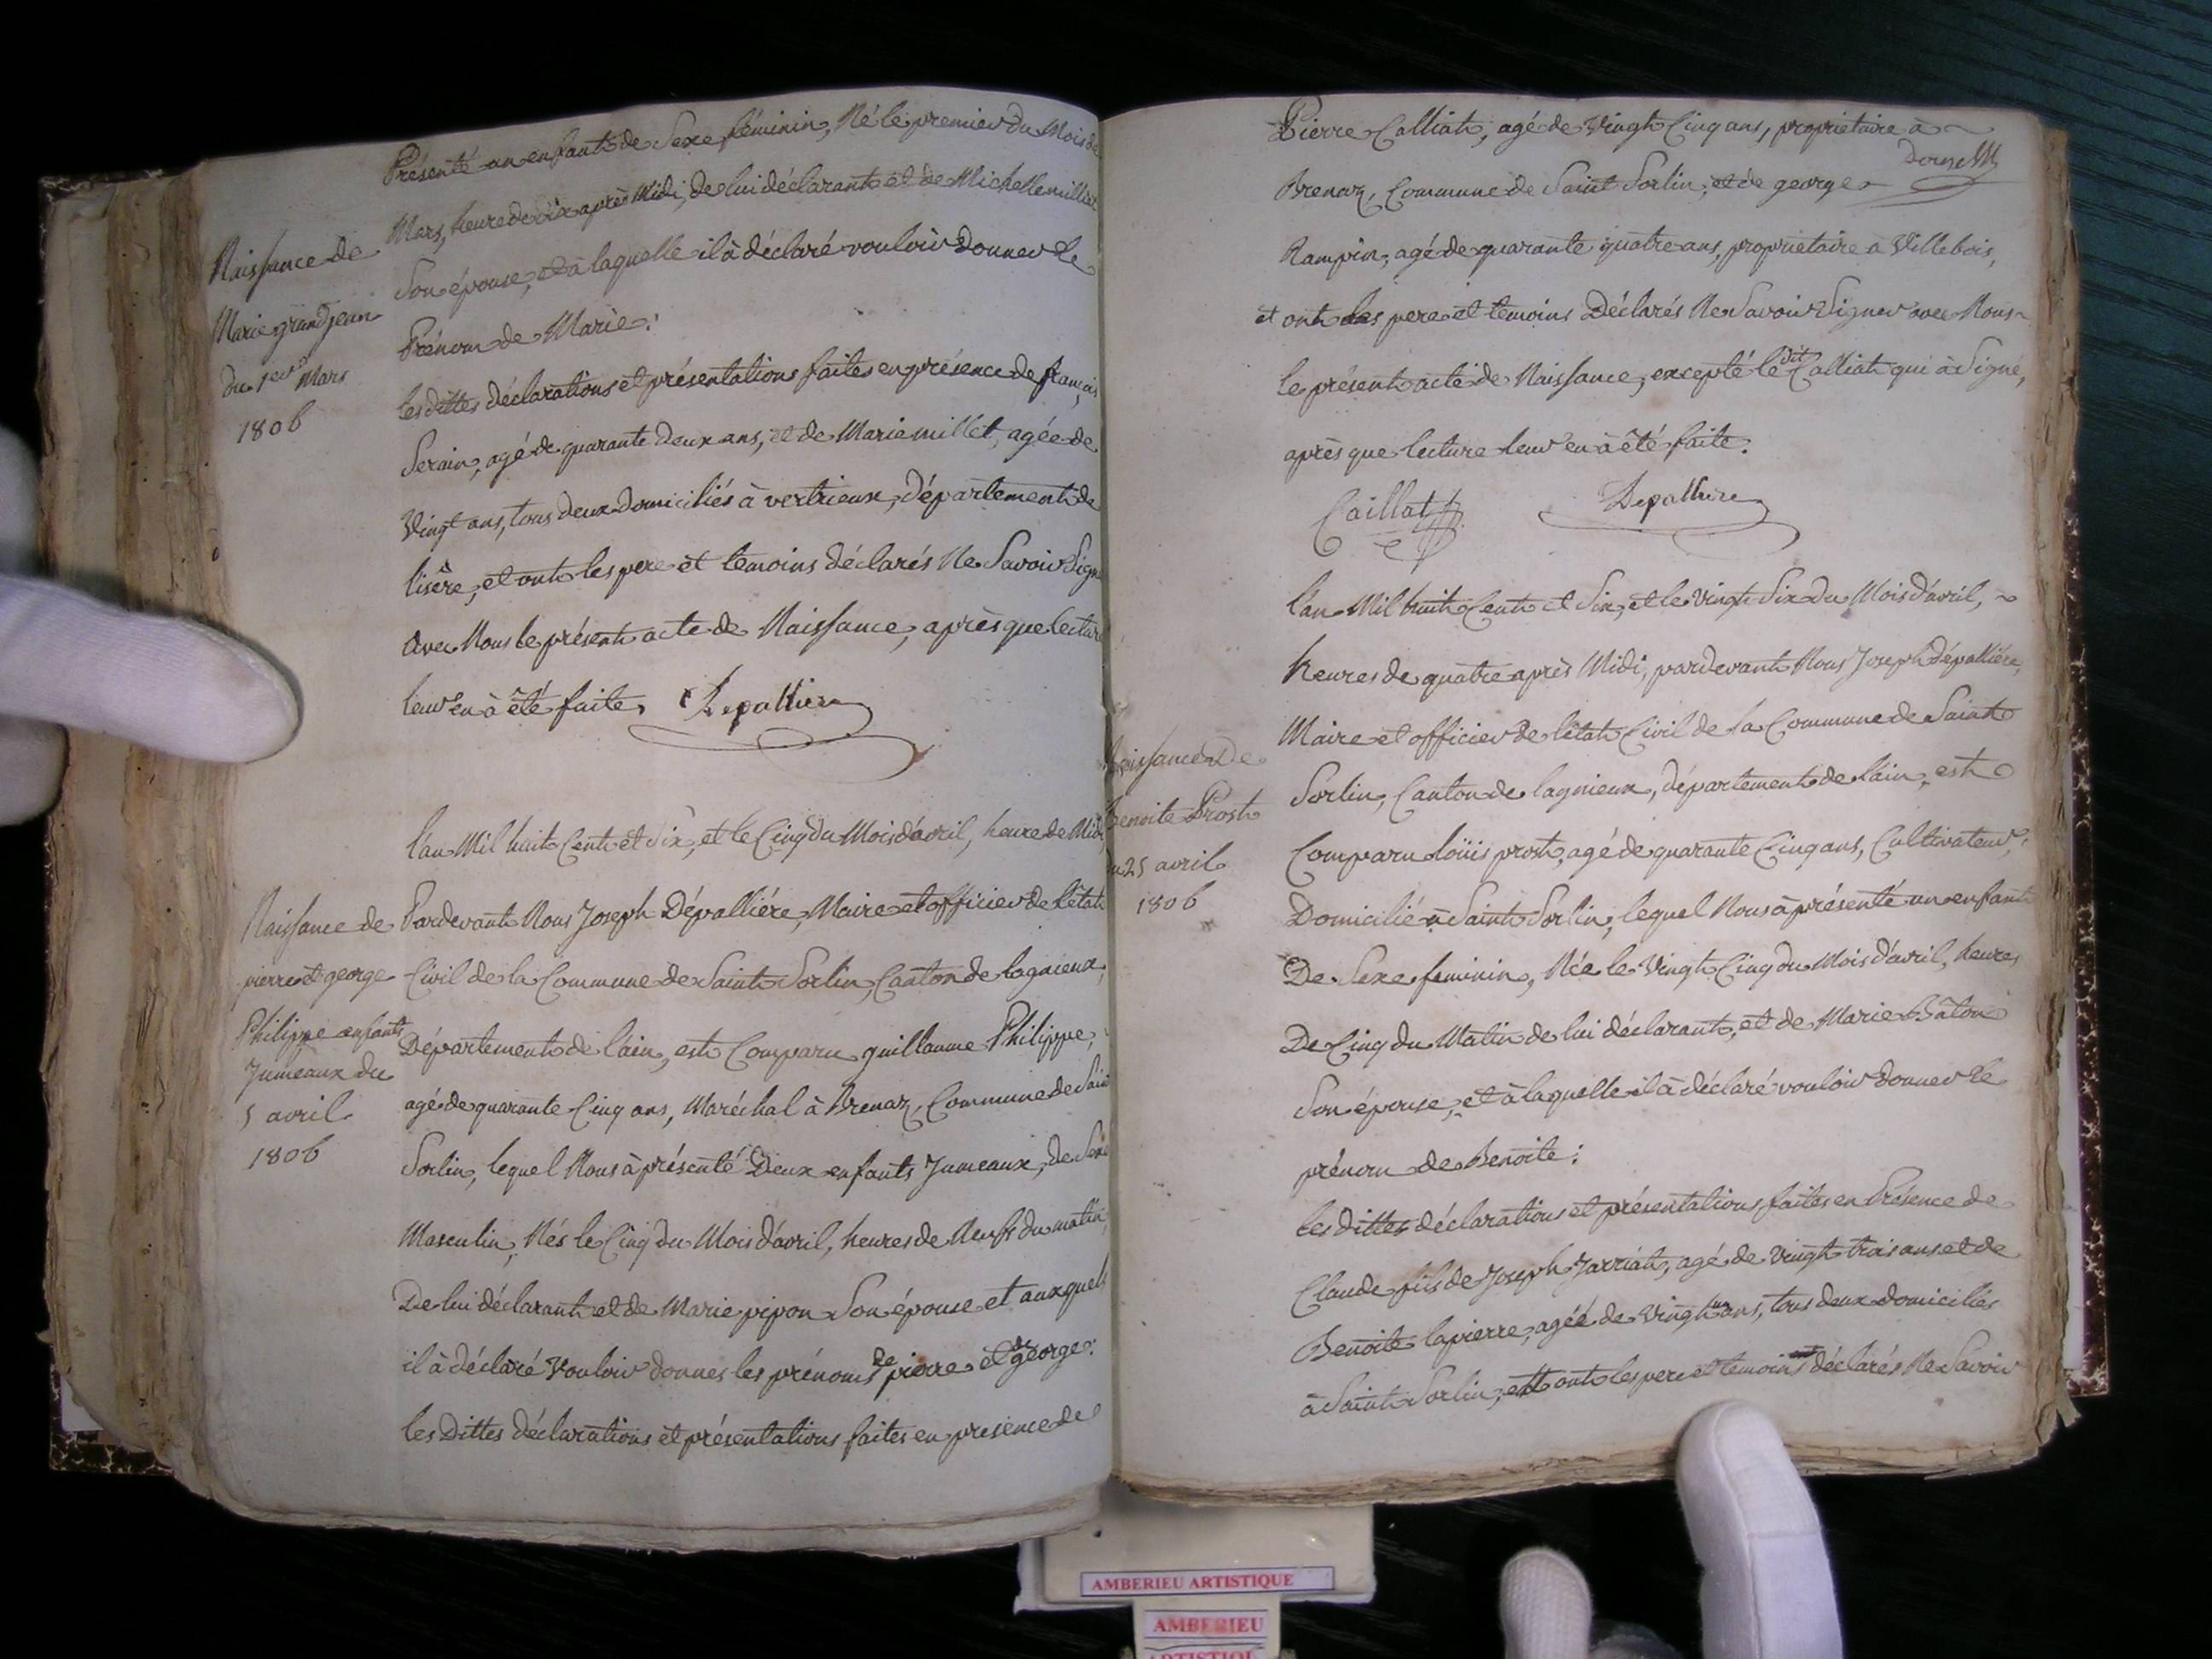 Présenté un enfant de Sexe féminin, Né le premier du Mois de
Mars, heure de dix après Midi, de lui déclarant et de Michelle milliet
Son épouse, et à laquelle il à déclaré vouloir donner le
Prénom de Marie:
les dittes déclarations et présentations faites en présence de françois
Serain, agé de quarante deux ans, et de Marie millet, agée de
Vingt ans, tous deux domiciliés à vertrieux, Département de
lisère, et ont les pere et temoins déclarés Ne Savoir Signer
avec Nous le présent acte de Naissance, après que lecture
leur en à été faite, Depallière
Naissance de
Marie grandjean
du 1er Mars
1806
l'an Mil huit Cent et Six, et le Cinq du Mois d'avril, heure de Midi,
Pardevant Nous Joseph Dépallière, Maire et officier de l'état
Civil de la Commune de Saint Sorlin, Canton de lagnieux,
Département de l'ain, est Comparu guillaume Philippe,
agé de quarante Cinq ans, Maréchal à Brenaz, Commune de Saint
Sorlin, lequel Nous à présenté Deux enfants Jumeaux, de Sexe
Masculin, Nés le Cinq du Mois d'avril, heures de Neufs du matin,
De lui déclarant et de Marie pipon Son épouse et auxquels
il à déclaré Vouloir donner les prénoms de pierre et de george:
les Dittes déclarations et présentations faites en presence de
Naissance de
pierre et george
Philippe enfants
Jumeaux du
5 avril
1806
Pierre Calliat, agé de Vingt Cinq ans, propriétaire à
Brenaz, Commune de Saint Sorlin, et de george
Rampin, agé de quarante quatre ans, propriétaire à Villebois,
et ont les pere et temoins Déclarés Ne Savoir Signer avec Nous
le présent acte de Naissance, excepté le dit Calliat qui à Signé,
après que lecture leur en à été faite:
Caillat Depallière
l'an Mil huit Cent et Six, et le Vingt Six du Mois d'avril,
heures de quatre après Midi, pardevant Nous Joseph Dépallière,
Maire et officier de l'état Civil de la Commune de Saint
Sorlin, Canton de lagnieux, département de l'ain, est
Comparu loüis prost, agé de quarante Cinq ans, Cultivateur,
Domicilié à Saint Sorlin, lequel Nous à présenté un enfant
De Sexe feminin, Née le Vingt Cinq du Mois d'avril, heures
De Cinq du Matin de lui déclarant, et de Marie Bâton
Son épouse, et à laquelle il à déclaré vouloir donner le
prénom de Benoite:
les dittes déclarations et présentations faites en Présence de
Claude fils de Joseph Jarriat, agé de vingt trois ans et de
Benoite lapierre, agéé de Vingt un ans, tous deux domiciliés
à Saint Sorlin, et ont les pere et temoins déclarés Ne Savoir
Naissance De
Benoite Prost
du 25 avril
1806
AMBERIEU ARTISTIQUE
AMBERIEU
ARTISTIQU